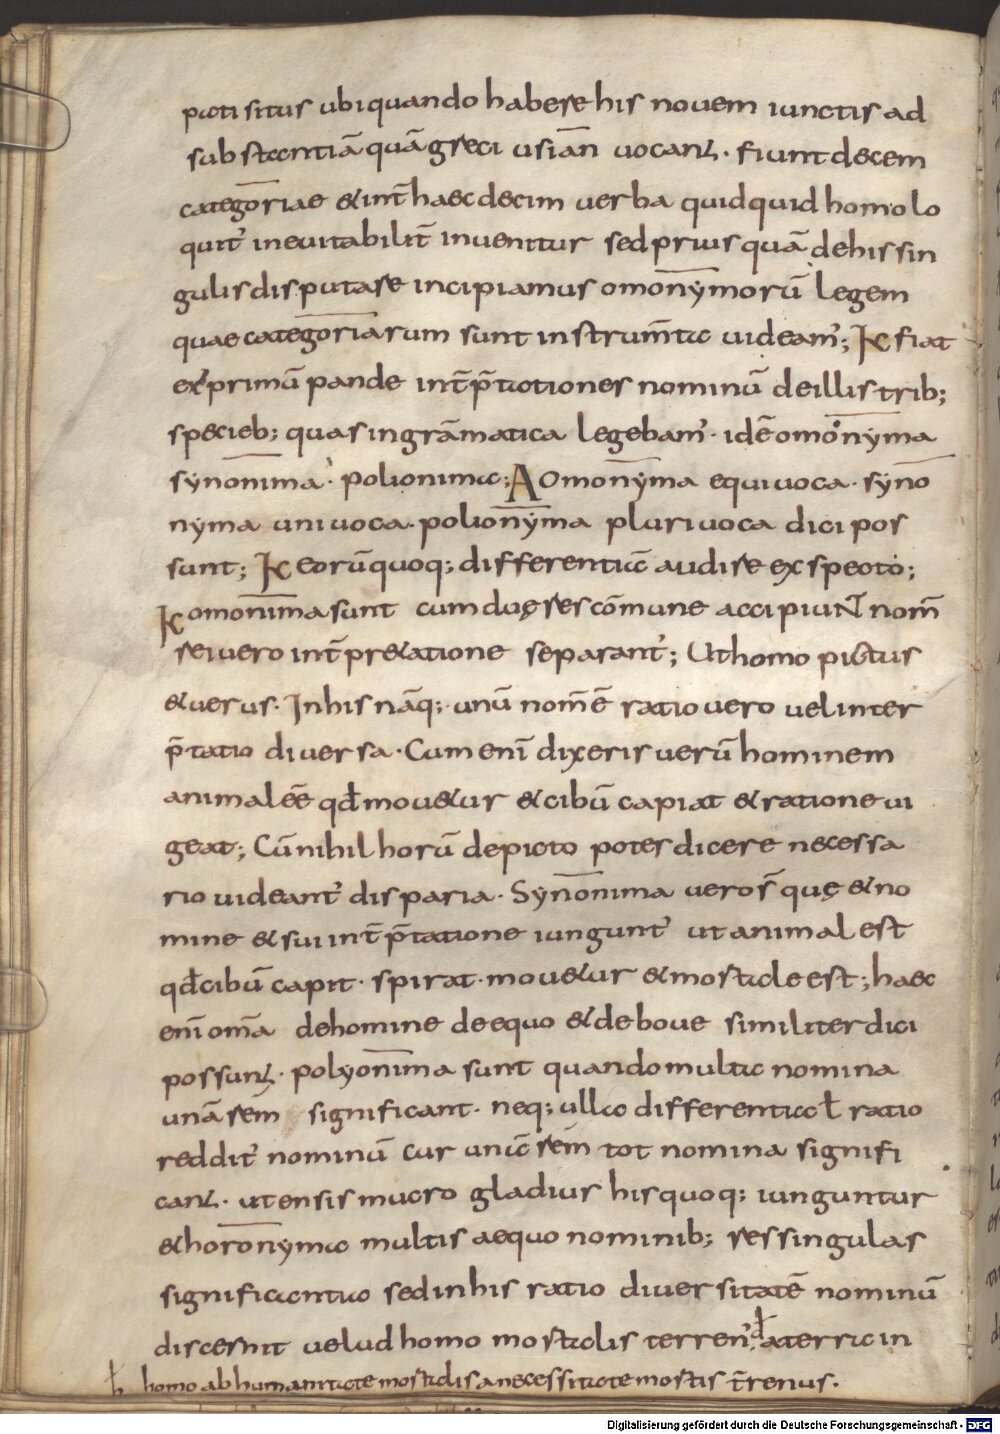 pati situs ubi quando habere his novem iunctis ad
substantiā quā greci usian vocant. fiunt decem
categoriae & int̄ haec decim verba quidquid homo lo
quit̉ inevitabilit̄ invenitur sed prius quā de his sin
gulis disputare incipiamus omonymorū legem
quae categoriarum sunt instrum̄ta videam̉; K fiat
& primū pande int̄p̄tationes nominū de illis trib;
specieb; quas in grāmatica legebam̉. idē omonyma
synonima. polionima; A omonyma equivoca. syno
nyma univoca. polionyma plurivoca dici pos
sunt; K eorū quoq; differentiā audire exspecto;
K omonima sunt cum duę res cōmune accipiunt nom̄
rei vero int̄pr&atione separant̉; Ut homo pictus
& verus. In his nāq; unū nom̄ ē ratio vero vel inter
p̄tatio diversa. Cum enī dixeris verū hominem
animal eē qđ mov&ur & cibū capiat & ratione vi
geat; Cū nihil horū de picto potes dicere necessa
rio videant̉ disparia. Synonima vero s̄ quę & no
mine & sui int̄p̄tatione iungunt̉ ut animal est
qđ cibū capit. spirat. mov&ur & mortale est; haec
enī om̄a de homine de equo & de bove similiter dici
possunt. polyonima sunt quando multa nomina
unā rem significant. neq; ulla differentia ł ratio
reddit̉ nominū cur unā rem tot nomina signifi
cant. ut ensis mucro gladius his quoq; iunguntur
& horonyma multis aequo nominib; res singulas
significantia sed in his ratio diversitatē nominū
discernit velud homo mortalis terren̉. a terra in
homo ab humanitate mortalis a necessitate mortis t̄renus.